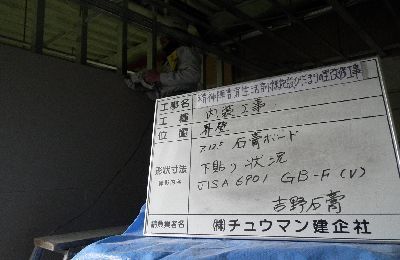 工事名 精神障害者生活訓練施設ひだまり改修工事
工種 内装工事
位置 界壁
形状寸法
ア12.5 石膏ボード
下貼り状況
JISA6901 GB-F(V)
吉野石膏
請負業者名 ㈱チュウマン建企社